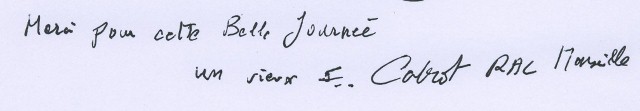 Merci pour cette Belle Journeé
un vieux Cabot RAC Marseille